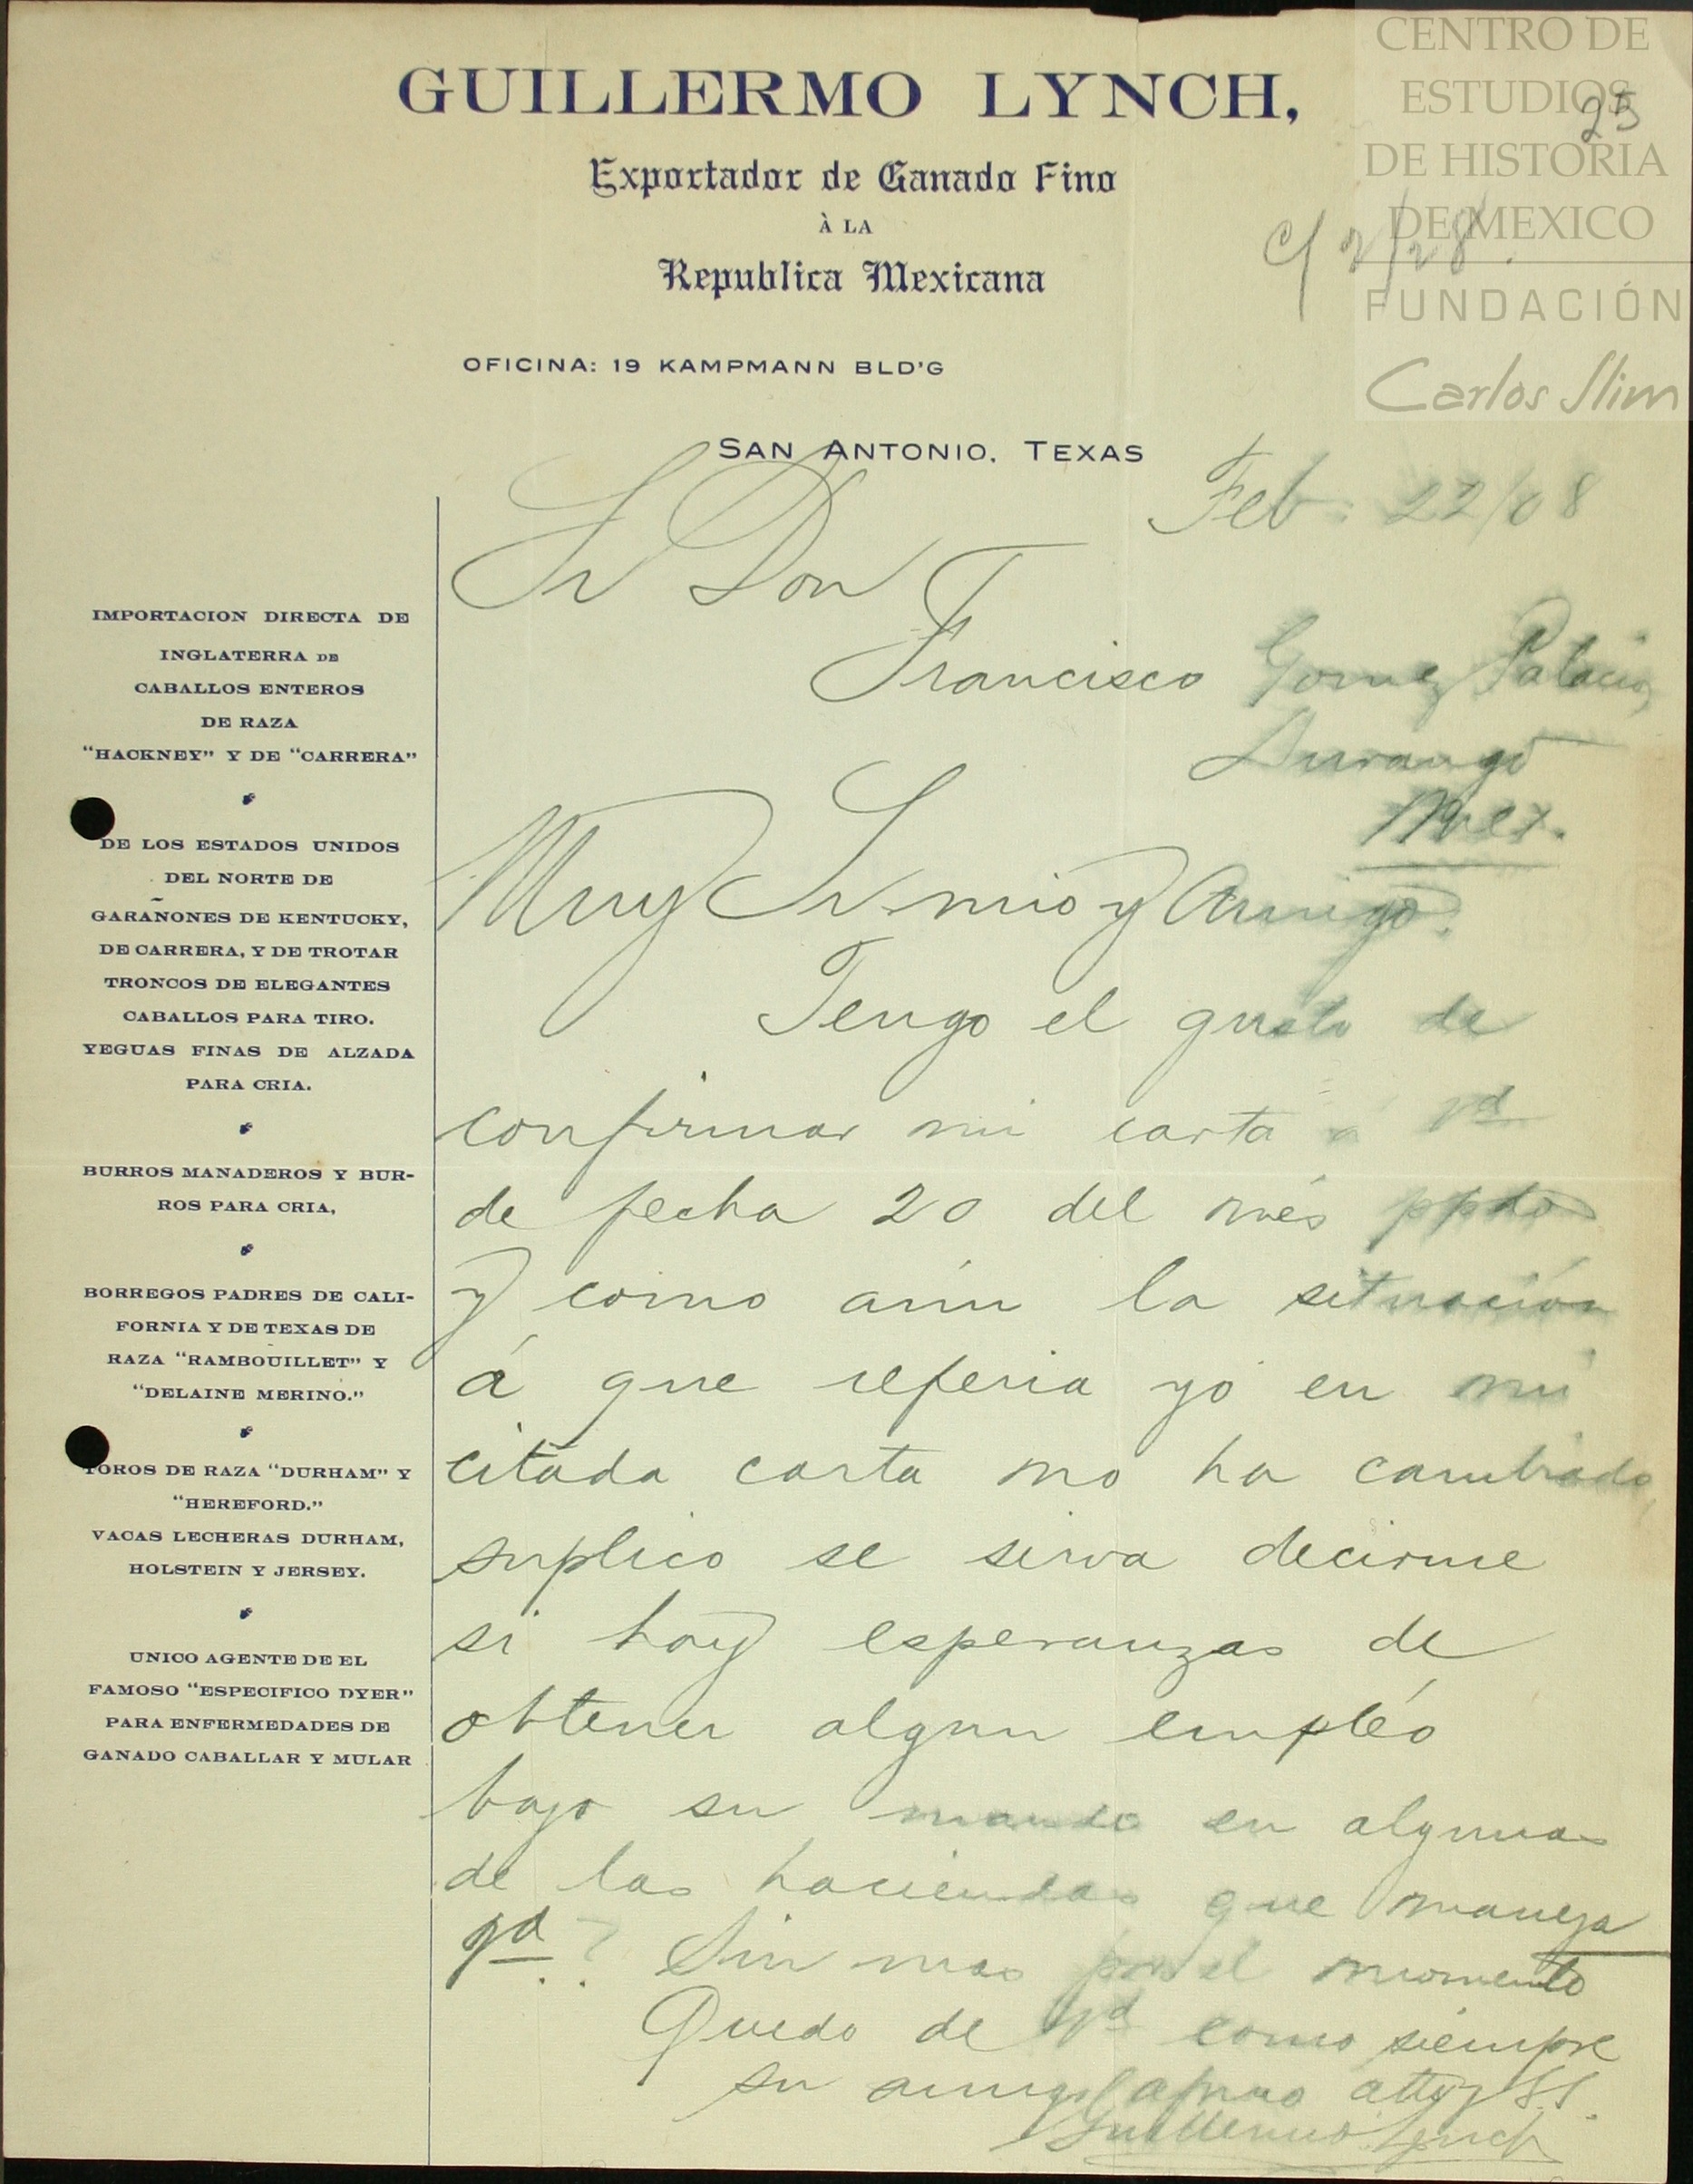 GUILLERMO LYNCH,
Exportador de Ganado Fino
À LA
Republica Mexicana
OFICINA: 19 KAMPMANN BLD'G
SAN ANTONIO, TEXAS
CENTRO DE
ESTUDIOS
DE HISTORIA
DE MEXICO
FUNDACIÓN
Carlos Slim
25
c/ 2/28.
IMPORTACION DIRECTA DE
INGLATERRA DE
CABALLOS ENTEROS
DE RAZA
"HACKNEY" Y DE "CARRERA"
DE LOS ESTADOS UNIDOS
DEL NORTE DE
GARAÑONES DE KENTUCKY,
DE CARRERA, Y DE TROTAR
TRONCOS DE ELEGANTES
CABALLOS PARA TIRO.
YEGUAS FINAS DE ALZADA
PARA CRIA.
BURROS MANADEROS Y BUR-
ROS PARA CRIA,
BORREGOS PADRES DE CALI-
FORNIA Y DE TEXAS DE
RAZA "RAMBOUILLET" Y
"DELAINE MERINO."
TOROS DE RAZA "DURHAM" Y
"HEREFORD."
VACAS LECHERAS DURHAM,
HOLSTEIN Y JERSEY.
UNICO AGENTE DE EL
FAMOSO "ESPECIFICO DYER"
PARA ENFERMEDADES DE
GANADO CABALLAR Y MULAR
Feb: 22/08
Sr Don
Francisco Gomez Palacio,
Durango
Mex.
Muy Sr. mio y Amigo:
Tengo el gusto de
confirmar mi carta á Vd
de fecha 20 del més ppdo
y como aún la situación
á que referia yó en mi
citada carta no ha cambiado,
suplico se sirva decirme
si hay esperanzas de
obtener algun empléo
bajo su mando en algunas
de las haciendas que maneja
Vd.? Sin mas por el momento
Quedo de Vd como siempre
su amigo afmo atto y S.S.
Guillermo Lynch